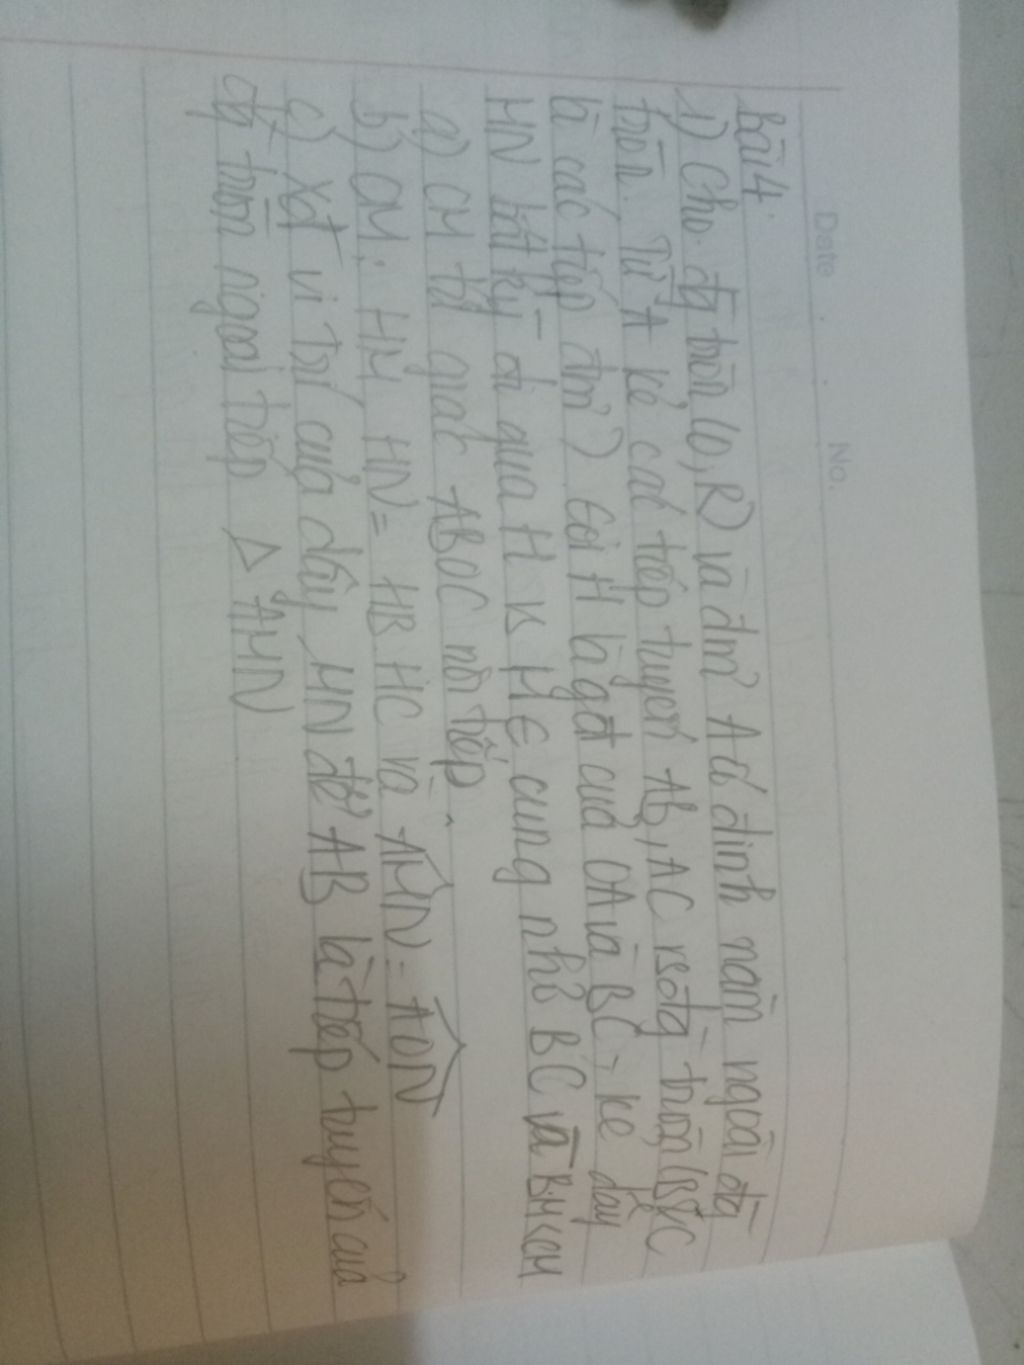 Date . . No.
Bài 4.
1) Cho đg tròn (O, R) và đm' A cố định nằm ngoài đg
tròn. Từ A kẻ các tiếp tuyến AB, AC vs đg tròn (B, C
là các tiếp đm'). Gọi H là gđ của OA và BC. kẻ dây
MN bất kỳ đi qua H vs M ∈ cung nhỏ BC và BM<CM
a) CM tứ giác ABOC nội tiếp
b) CM: HM HN = HB HC và AMN = AON
c) Xét vị trí của dây MN để AB là tiếp tuyến của
đg tròn ngoại tiếp Δ AMN